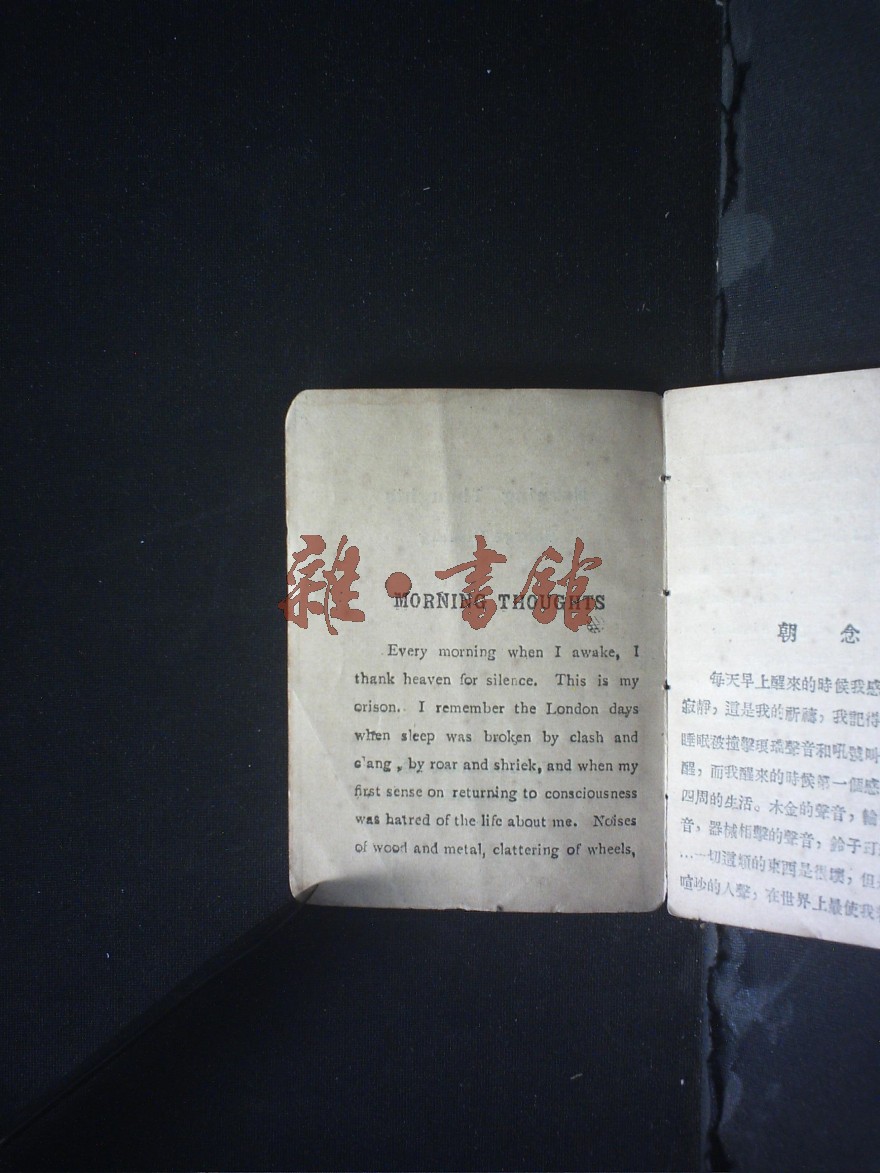 雜·書館
MORNING THOUGHTS
Every morning when I awake, I
thank heaven for silence. This is my
orison. I remember the London days
when sleep was broken by clash and
c'ang, by roar and shriek, and when my
first sense on returning to consciousness
was hatred of the life about me. Noises
of wood and metal, clattering of wheels,
朝 念
每天早上醒來的時候我感
寂靜,這是我的祈禱,我記得
睡眠被撞擊聲音和吼號叫
醒,而我醒來的時候第一個感
四周的生活。木金的聲音,輪
音,器械相擊的聲音,鈴子叮
…一切這類的東西是很壞,但
喧吵的人聲,在世界上最使我